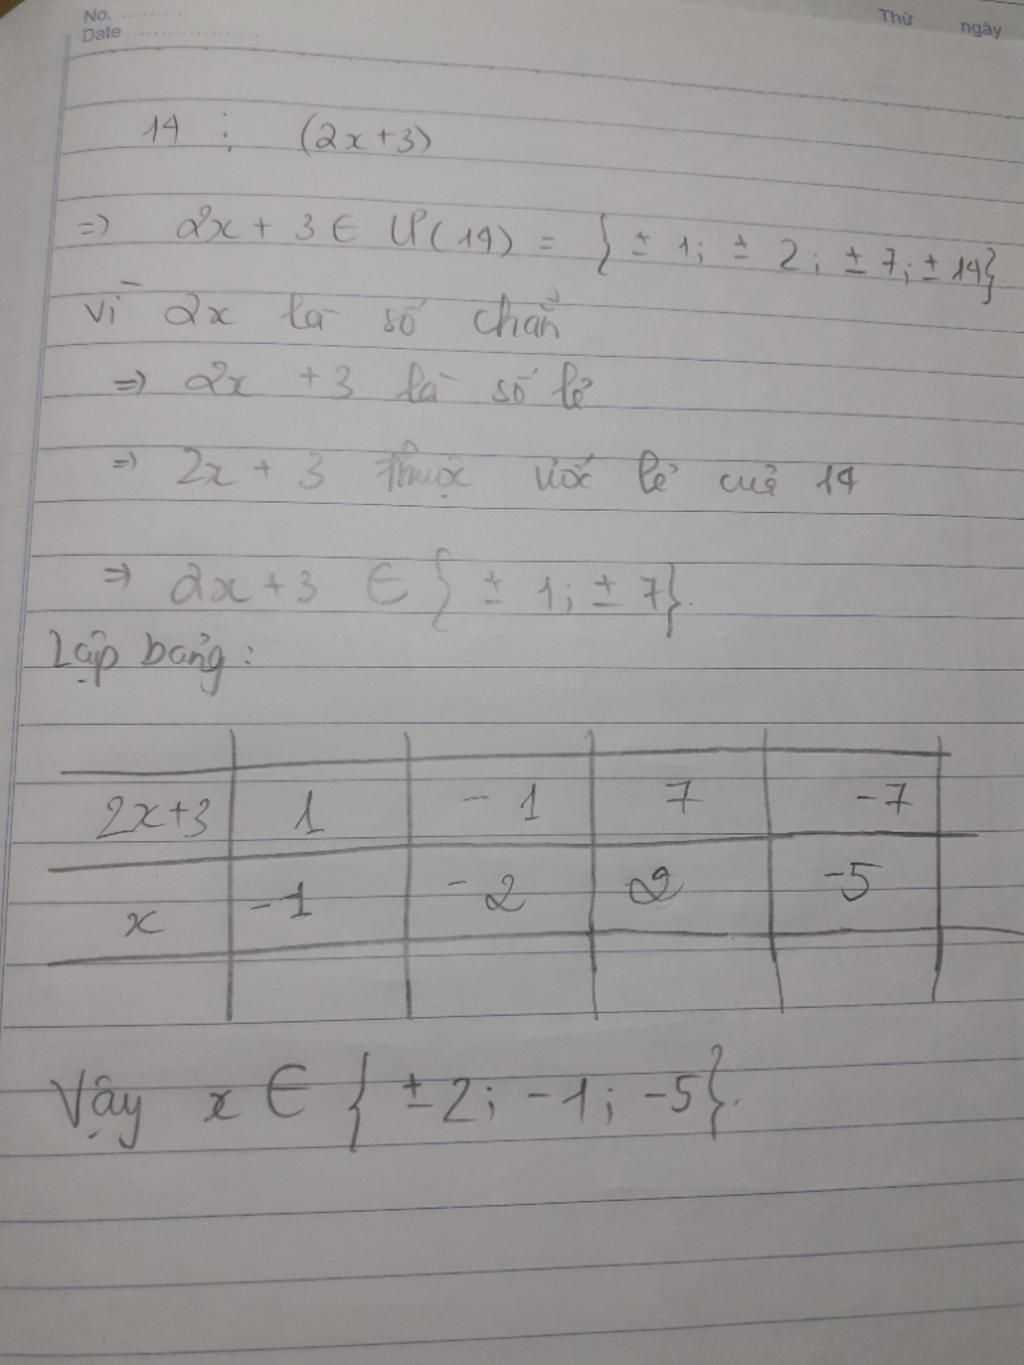 No.
Date
Thứ ngày
14 ⋮ (2x+3)
=> 2x + 3 ∈ Ư(14) = { ± 1; ± 2; ± 7; ± 14}
Vì 2x là số chẵn
=> 2x + 3 là số lẻ
=> 2x + 3 thuộc ước lẻ của 14
=> 2x+3 ∈ { ± 1; ± 7}.
Lập bảng:
2x+3 1 -1 7 -7
x -1 -2 2 -5
Vậy x ∈ { ±2; -1; -5}.